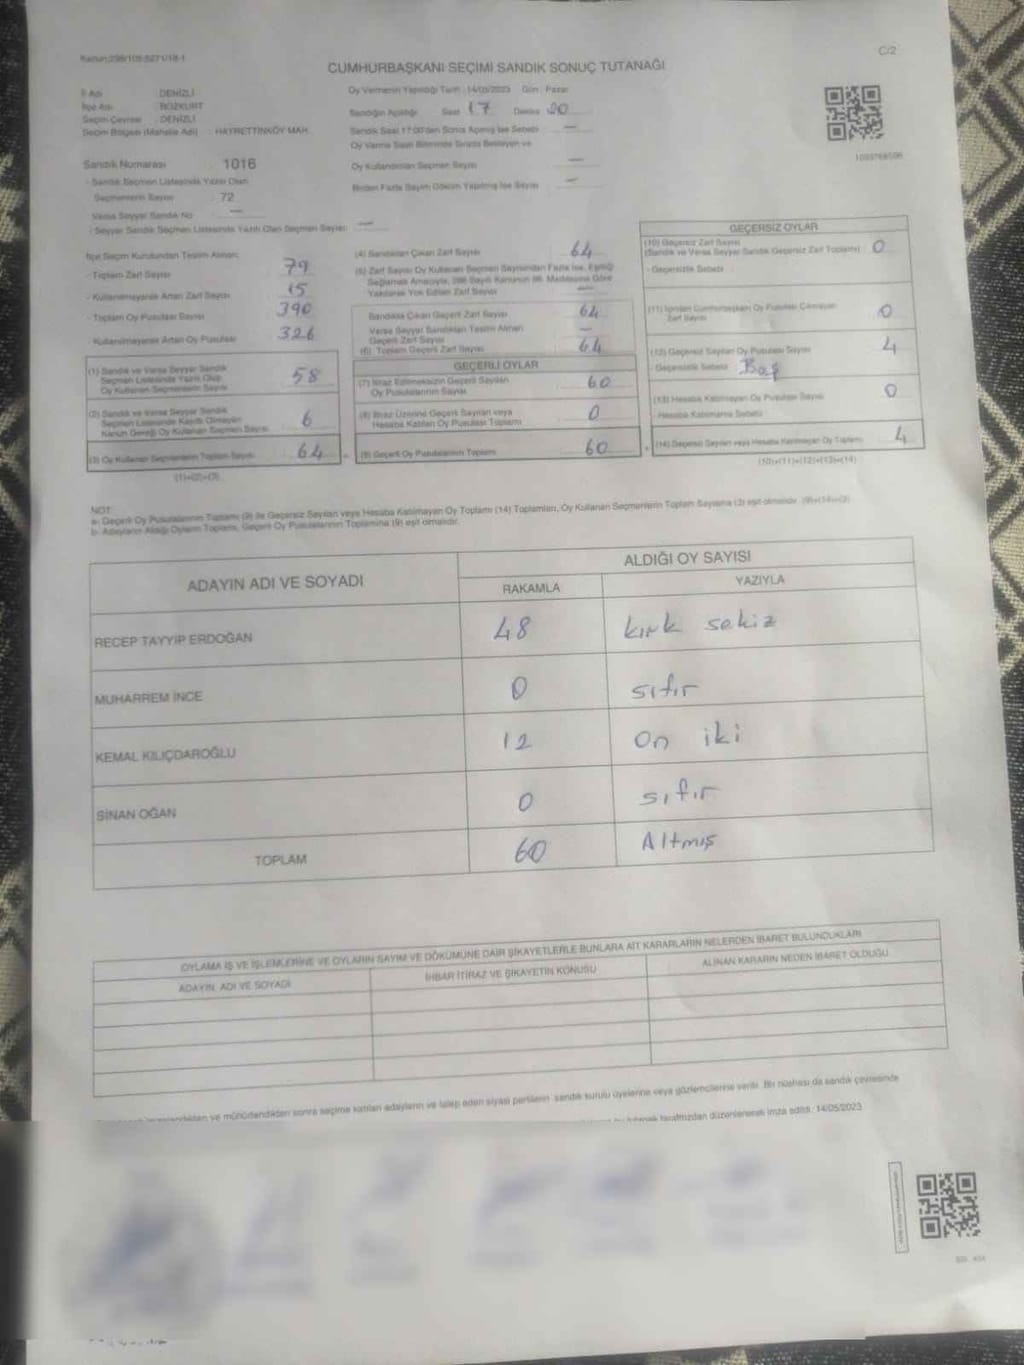 Kanun:298/105-5271/18-1
C/2
CUMHURBAŞKANI SEÇİMİ SANDIK SONUÇ TUTANAĞI
İl Adı DENİZLİ
İlçe Adı BOZKURT
Seçim Çevresi DENİZLİ
Seçim Bölgesi (Mahalle Adı) : HAYRETTİNKÖY MAH.
Sandık Numarası 1016
- Sandık Seçmen Listesinde Yazılı Olan
Seçmenlerin Sayısı 72
Varsa Seyyar Sandık No —
- Seyyar Sandık Seçmen Listesinde Yazılı Olan Seçmen Sayısı —
Oy Vermenin Yapıldığı Tarih : 14/05/2023 Gün : Pazar
Sandığın Açıldığı Saat 17 Dakika 20
Sandık Saat 17:00'den Sonra Açılmış İse Sebebi —
Oy Verme Saati Bitiminde Sırada Bekleyen ve
Oy Kullandırılan Seçmen Sayısı —
Birden Fazla Sayım Döküm Yapılmış İse Sayısı —
İlçe Seçim Kurulundan Teslim Alınan;
- Toplam Zarf Sayısı 79
- Kullanılmayarak Artan Zarf Sayısı 15
- Toplam Oy Pusulası Sayısı 390
- Kullanılmayarak Artan Oy Pusulası 326
(1) Sandık ve Varsa Seyyar Sandık
Seçmen Listesinde Yazılı Olup
Oy Kullanan Seçmenlerin Sayısı 58
(2) Sandık ve Varsa Seyyar Sandık
Seçmen Listesinde Kayıtlı Olmayan
Kanun Gereği Oy Kullanan Seçmen Sayısı 6
(3) Oy Kullanan Seçmenlerin Toplam Sayısı 64
(1)+(2)=(3)
(4) Sandıktan Çıkan Zarf Sayısı 64
(5) Zarf Sayısı Oy Kullanan Seçmen Sayısından Fazla İse, Eşitliği
Sağlamak Amacıyla, 298 Sayılı Kanunun 98. Maddesine Göre
Yakılarak Yok Edilen Zarf Sayısı —
Sandıkta Çıkan Geçerli Zarf Sayısı 64
Varsa Seyyar Sandıktan Teslim Alınan
Geçerli Zarf Sayısı —
(6) Toplam Geçerli Zarf Sayısı 64
GEÇERLİ OYLAR
(7) İtiraz Edilmeksizin Geçerli Sayılan
Oy Pusulasının Sayısı 60
(8) İtiraz Üzerine Geçerli Sayılan veya
Hesaba Katılan Oy Pusulası Toplamı 0
(9) Geçerli Oy Pusulalarının Toplamı 60
GEÇERSİZ OYLAR
(10) Geçersiz Zarf Sayısı
(Sandık ve Varsa Seyyar Sandık Geçersiz Zarf Toplamı) 0
- Geçersizlik Sebebi
(11) İçinden Cumhurbaşkanı Oy Pusulası Çıkmayan
Zarf Sayısı 0
(12) Geçersiz Sayılan Oy Pusulası Sayısı 4
- Geçersizlik Sebebi Boş
(13) Hesaba Katılmayan Oy Pusulası Sayısı 0
- Hesaba Katılmama Sebebi
(14) Geçersiz Sayılan veya Hesaba Katılmayan Oy Toplamı 4
(10)+(11)+(12)+(13)=(14)
NOT:
a- Geçerli Oy Pusulalarının Toplamı (9) ile Geçersiz Sayılan veya Hesaba Katılmayan Oy Toplamı (14) Toplamları, Oy Kullanan Seçmenlerin Toplam Sayısına (3) eşit olmalıdır. (9)+(14)=(3)
b- Adayların Aldığı Oyların Toplamı, Geçerli Oy Pusulalarının Toplamına (9) eşit olmalıdır.
ADAYIN ADI VE SOYADI ALDIĞI OY SAYISI
RAKAMLA YAZIYLA
RECEP TAYYİP ERDOĞAN 48 kırk sekiz
MUHARREM İNCE 0 sıfır
KEMAL KILIÇDAROĞLU 12 on iki
SİNAN OĞAN 0 sıfır
TOPLAM 60 Altmış
OYLAMA İŞ VE İŞLEMLERİNE VE OYLARIN SAYIM VE DÖKÜMÜNE DAİR ŞİKAYETLERLE BUNLARA AİT KARARLARIN NELERDEN İBARET BULUNDUKLARI
ADAYIN ADI VE SOYADI İHBAR İTİRAZ VE ŞİKAYETİN KONUSU ALINAN KARARIN NEDEN İBARET OLDUĞU
mühürlendikten sonra seçime katılan adayların ve talep eden siyasi partilerin sandık kurulu üyelerine veya gözlemcilerine verilir. Bir nüshası da sandık çevresinde
tarafımızdan düzenlenerek imza edildi. 14/05/2023